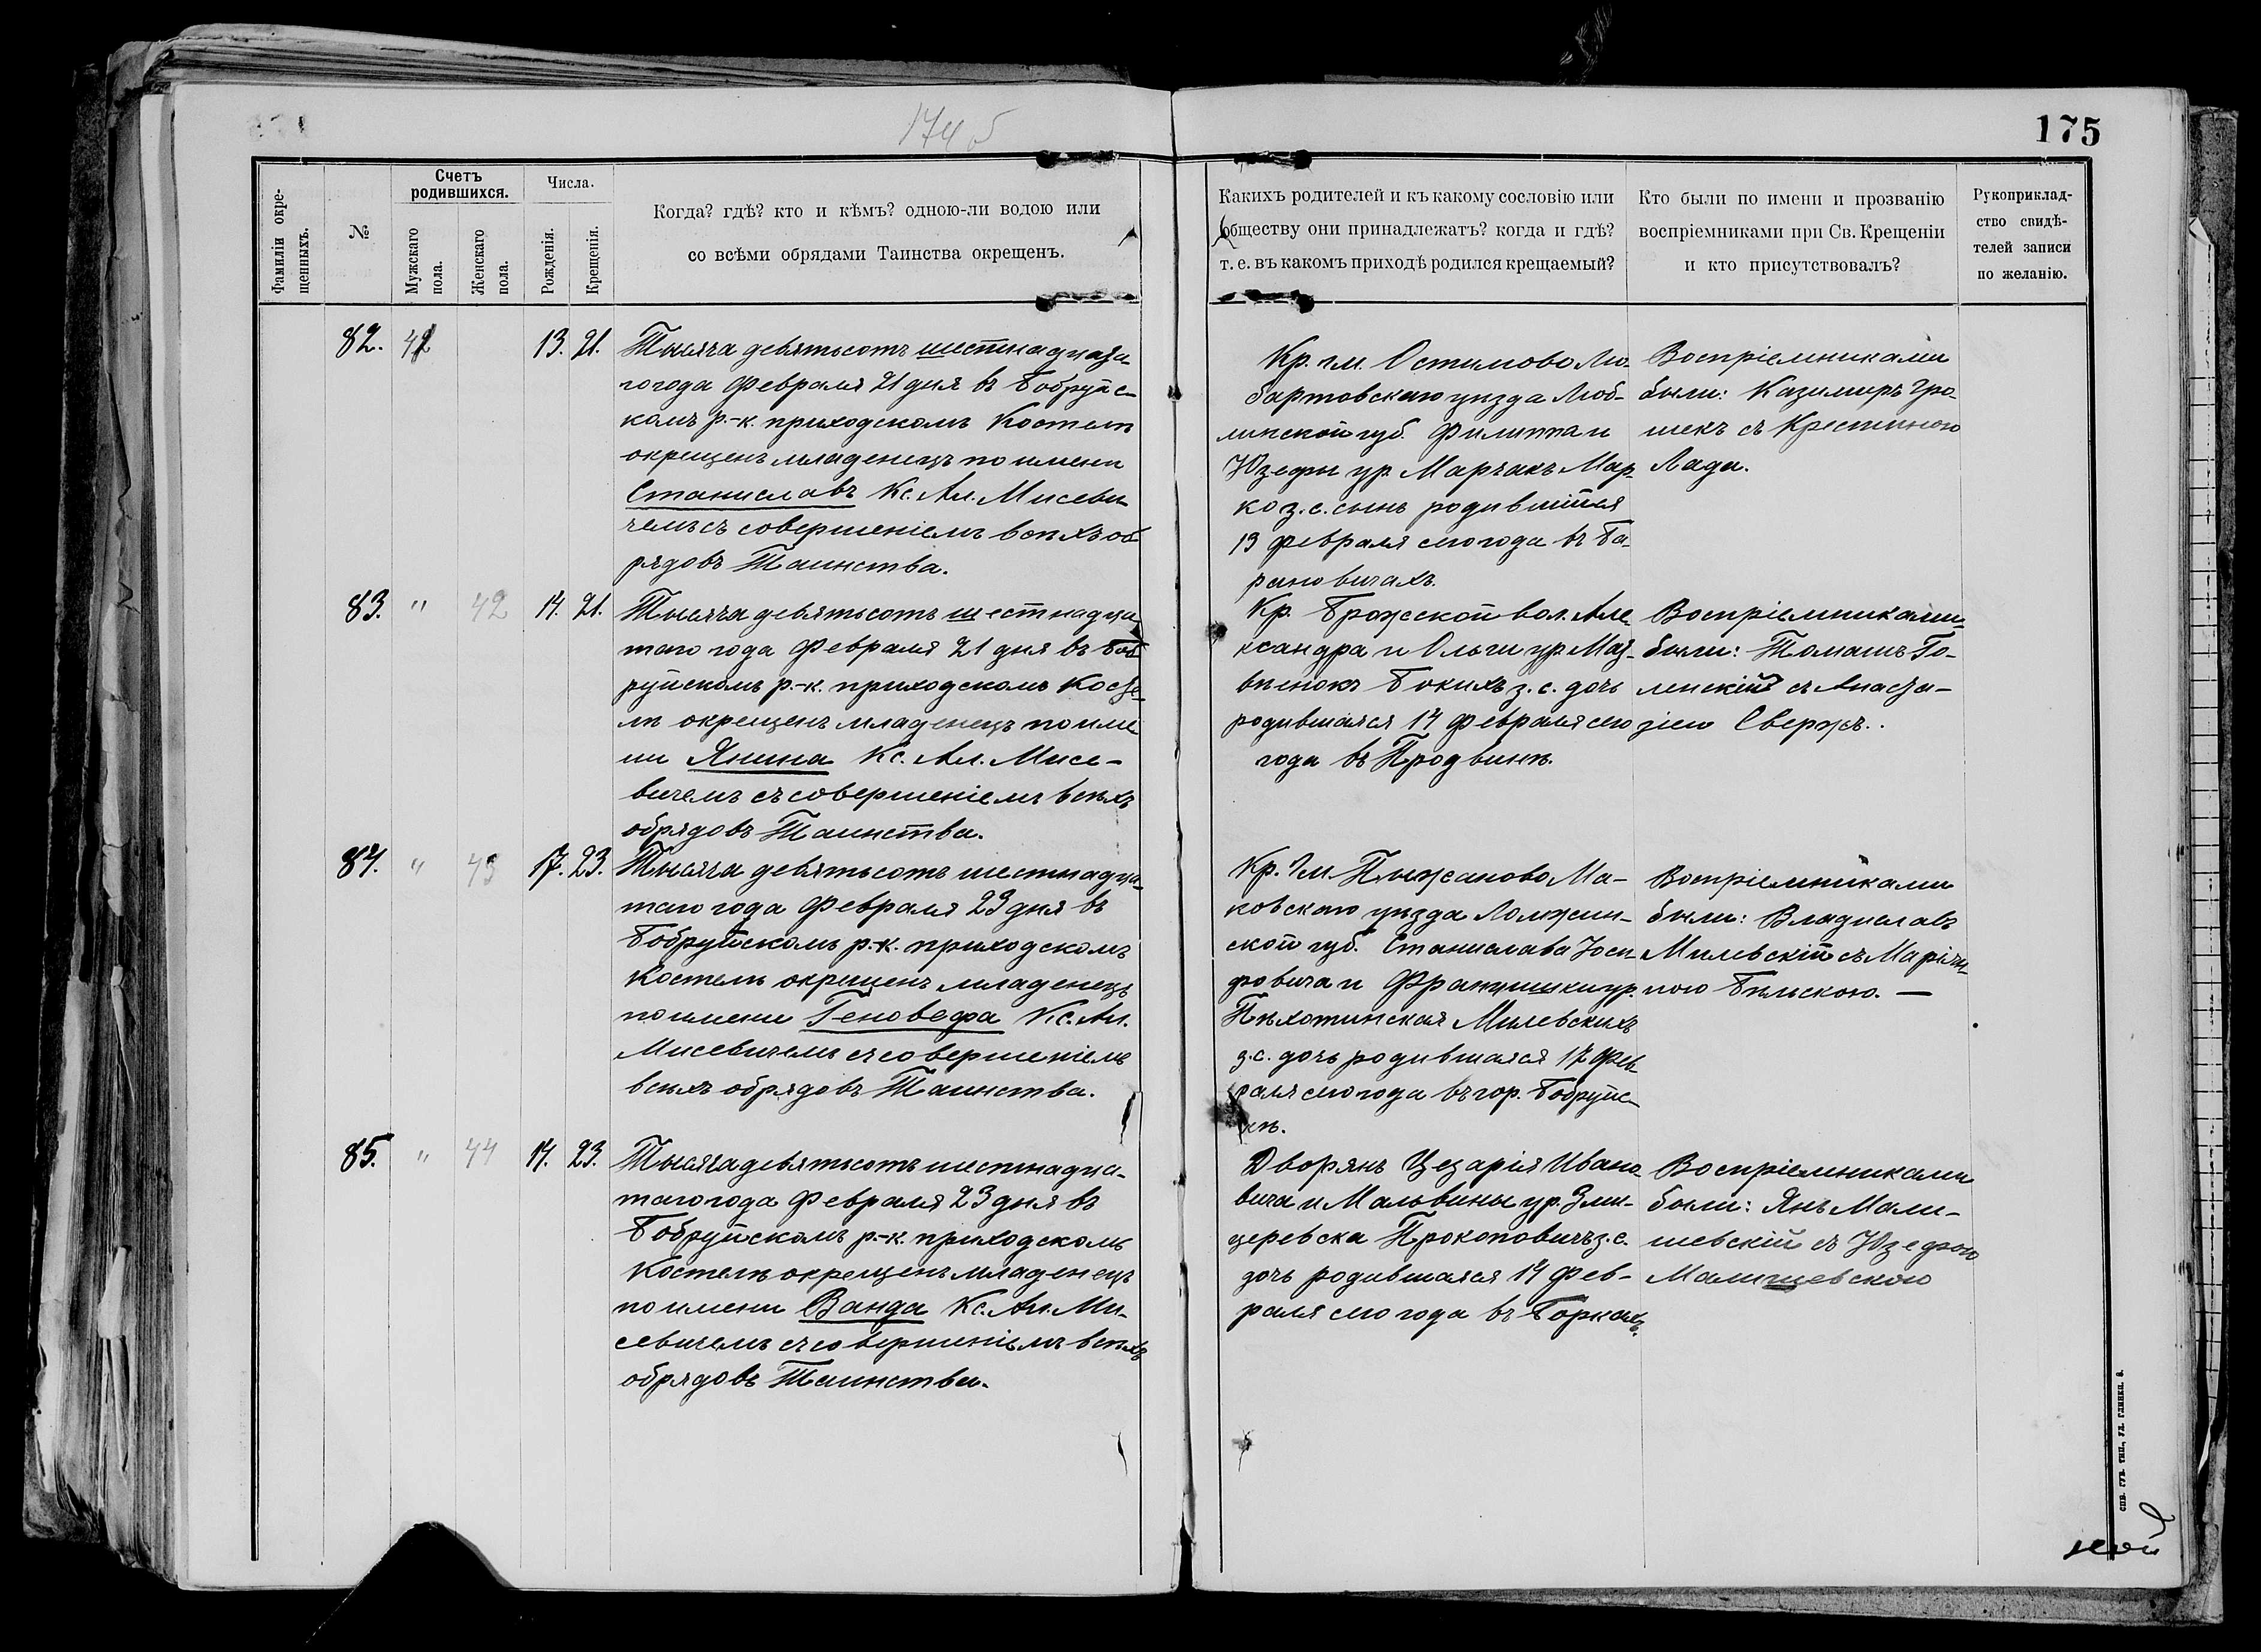 174 б
175
Фамиліи окре-
щенныхъ.
№
Счетъ
родившихся.
Мужскаго
пола.
Женскаго
пола.
Числа.
Рожденія.
Крещенія.
Когда? гдѣ? кто и кѣмъ? одною-ли водою или
со всѣми обрядами Таинства окрещенъ.
Какихъ родителей и къ какому сословію или
обществу они принадлежатъ? когда и гдѣ?
т. е. въ какомъ приходѣ родился крещаемый?
Кто были по имени и прозванію
воспріемниками при Св. Крещеніи
и кто присутствовалъ?
Рукоприклад-
ство свидѣ-
телей записи
по желанію.
82. 42 13. 21.
Тысяча девятьсотъ шестнадцата-
го года Февраля 21 дня въ Бобруйс-
комъ р.-к. приходскомъ Костелѣ
окрещенъ младенецъ по имени
Станиславъ Кс. Ал. Мисеви-
чемъ съ совершеніемъ всѣхъ об-
рядовъ Таинства.
Кр. гм. Остимово Лю-
бартовскаго уѣзда Люб-
линской губ. Филиппа и
Юзефы ур. Марчакъ Мар-
ко з. с. сынъ родившійся
13 февраля сего года въ Ба-
рановичахъ.
Воспріемниками
были: Казимиръ Гро-
мекъ съ Крестиною
Лада.
83. " 42 14. 21.
Тысяча девятьсотъ шестнадца-
таго года Февраля 21 дня въ Боб-
руйскомъ р.-к. приходскомъ Косте-
лѣ окрещенъ младенецъ по име-
ни Янина Кс. Ал. Мисе-
вичемъ съ совершеніемъ всѣхъ
обрядовъ Таинства.
Кр. Брожской вол. Але-
ксандра и Ольги ур. Маз-
вѣнокъ Бокихъ з. с. дочь
родившаяся 14 Февраля сего
года въ Продвинѣ.
Воспріемниками
были: Томашъ Го-
ленскій съ Анаста-
зіею Свержъ.
84. " 43 17. 23.
Тысяча девятьсотъ шестнадца-
таго года Февраля 23 дня въ
Бобруйскомъ р.-к. приходскомъ
Костелѣ окрещенъ младенецъ
по имени Геновефа Кс. Ал.
Мисевичемъ съ совершеніемъ
всѣхъ обрядовъ Таинства.
Кр. Гм. Пыжаново Ма-
ковскаго уѣзда Ломжин-
ской губ. Станислава Іоси-
фовича и Францишки ур.
Пѣхотинская Милевскихъ
з. с. дочь родившаяся 17 Фев-
раля сего года въ гор. Бобруйс-
кѣ.
Воспріемниками
были: Владиславъ
Милевскій съ Маріан-
ною Бѣльскою. —
85. " 44 14. 23.
Тысяча девятьсотъ шестнадца-
таго года Февраля 23 дня въ
Бобруйскомъ р.-к. приходскомъ
Костелѣ окрещенъ младенецъ
по имени Ванда Кс. Ал. Ми-
севичемъ съ совершеніемъ всѣхъ
обрядовъ Таинства.
Дворянъ Цезарія Ивано-
вича и Мальвины ур. Зми-
церевска Прокоповичъ з. с.
дочь родившаяся 14 Фев-
раля сего года въ Боркахъ.
Воспріемниками
были: Янъ Мали-
шевскій съ Юзефою
Малишевскою
СПБ. ГУБ. ТИП., УЛ. ГЛИНКИ, 8.